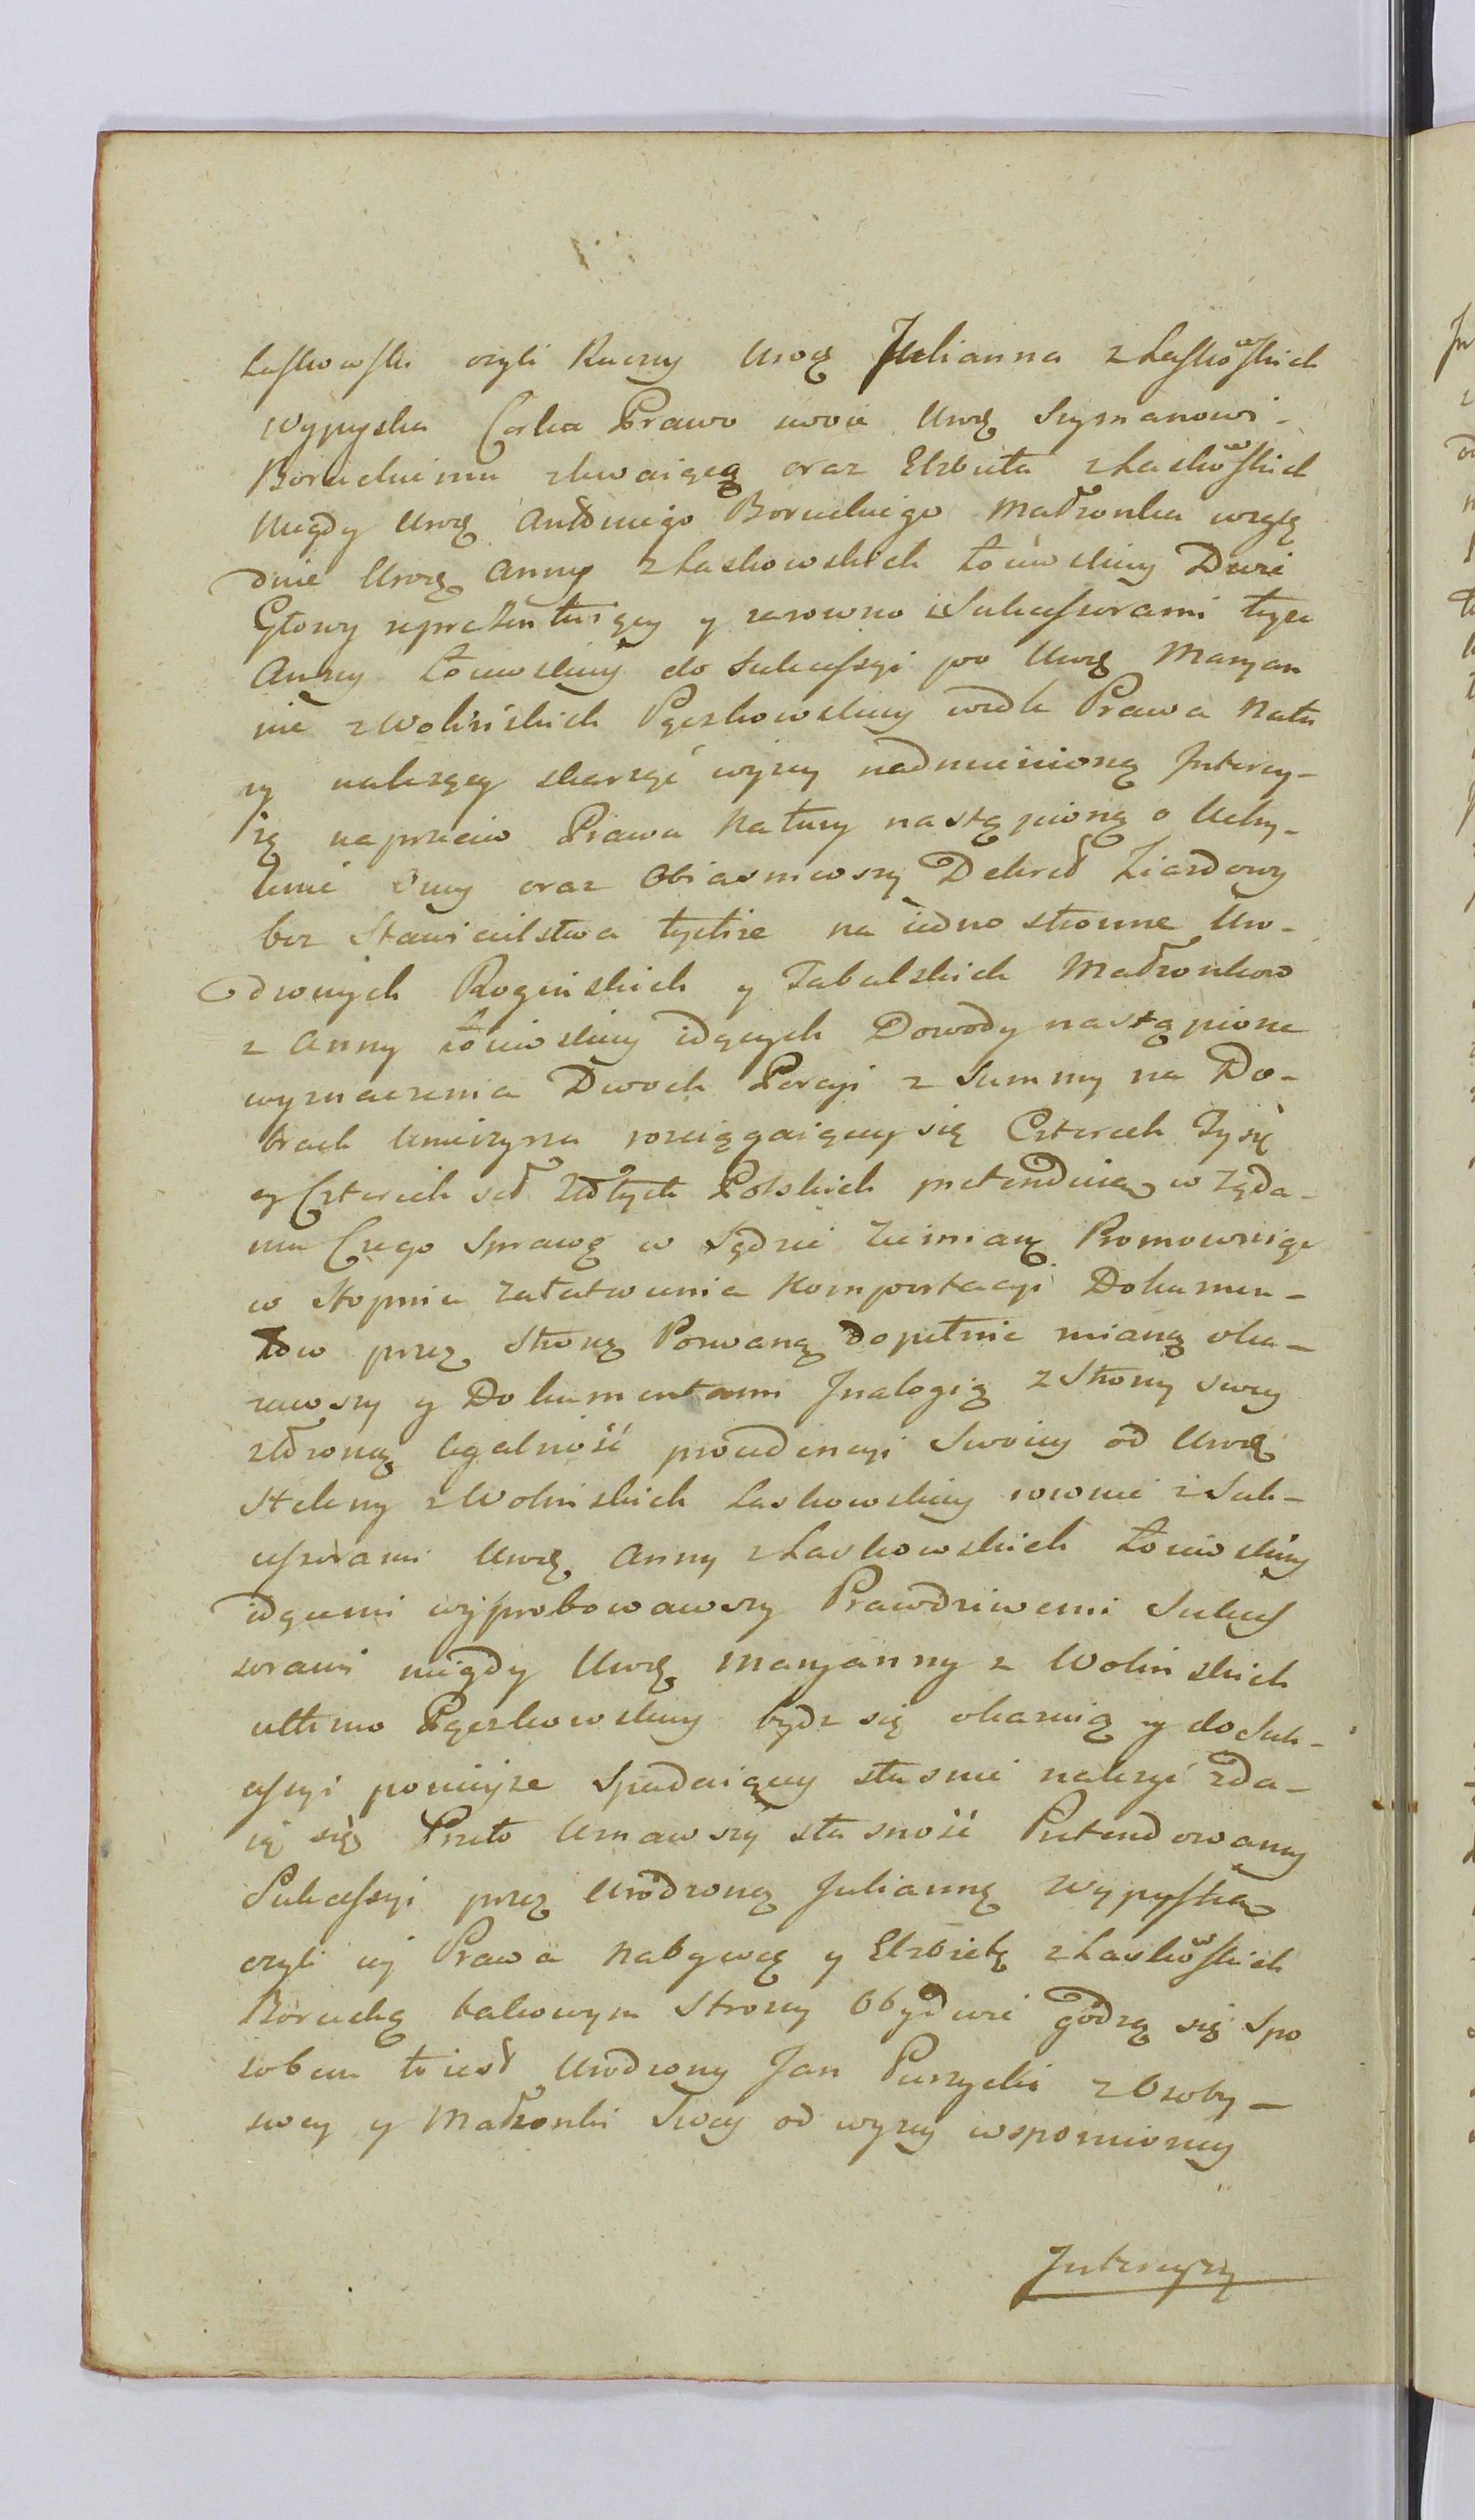 Laskowski czyli Raczey Urodz Julianna z Laskowskich
Wypyska Corka Prawo swoie Urodz Szymanowi
Boruckiemu zlewaiącą oraz Elzbieta z Laskowskich
Niegdy Urodz Antoniego Boruckiego Małżonka wzglę
dnie Urodz Anny z Laskowskich Łoiewskiey Dwie
Głowy reprezentuiący y zarowno z Sukcessorami teyze
Anny Łoiewskiey do Sukcessyi po Urodz Maryan
nie z Wolińskich Pęczkowskiey wedle Prawa Natu
ry należący skarżyć wyżey nadmienioną Intercy-
zę naprzeciw Prawu Natury nastąpioną o Uchy-
lenie Oney oraz Obiasniwszy Dekret Ziazdowy
bez Stawicielstwa tychże na iedno stronne Uro-
dzonych Rogińskich y Tabulskich Małżonkow
z Anny Łoiewskiey idących Dowody nastąpione
wyznaczenia Dwoch Porcyi z Summy na Do-
brach Uniszyna rozciągaiącey się Czterech Tysię
cy Czterech set Złłtych Polskich pretenduią w Żąda-
niu Czego Sprawę w Sądzie Ziemiań Promowuiąc
w Stopniu załatwienia Komportacyi Dokumen-
tow przez Stronę Pozwaną dopełnić mianą oka-
zawszy y Dokumentami Jnalogią z Strony swey
złożoną legalność proudencyi Swoiey od Urodz
Heleny z Wolińskich Laskowskiey rownie z Suk-
cessorami Urodz Anny z Laskowskich Łoiewskiey
idącemi wyprobowawszy Prawdziwemi Sukces
sorami niegdy Urodz Maryanny z Wolinskich
ultimo Pęczkowskiey bydz się okazuią y do Suk-
cessyi poniższe Spadaiącey słusznie należyć zda-
ią się Przeto Uznawszy słuszność Pretendowaney
Sukcessyi przez Urodzoną Juliannę Wypyską
czyli iey Prawa Nabywcę y Elzbietę z Laskowskich
Borucką takowym Strony Obydwie godzą się Spo
sobem to iest Urodzony Jan Puszycki z Osoby
swey y Małżonki Swey od wyżey wspomnioney
Intercyzy